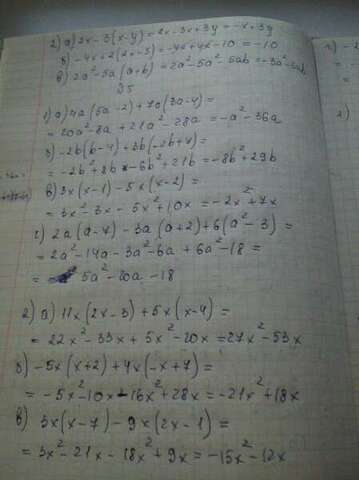 2) а) 2x - 3(x-y) = 2x - 3x + 3y = -x + 3y
б) -4x + 2(2x-5) = -4x + 4x - 10 = -10
в) 2a² - 5a(a+b) = 2a² - 5a² - 5ab = -3a² - 5ab
1) а) 4a(5a-2) + 7a(3a-4) =
= 20a² - 8a + 21a² - 28a = -a² - 36a
б) -2b(b-4) + 3b(-2b+7) =
= -2b² + 8b - 6b² + 21b = -8b² + 29b
в) 3x(x-1) - 5x(x-2) =
= 3x² - 3x - 5x² + 10x = -2x² + 7x
г) 2a(a-7) - 3a(a+2) + 6(a²-3) =
= 2a² - 14a - 3a² - 6a + 6a² - 18 =
= 5a² - 20a - 18
2) а) 11x(2x-3) + 5x(x-4) =
= 22x² - 33x + 5x² - 20x = 27x² - 53x
б) -5x(x+2) + 4x(-x+7) =
= -5x² - 10x - 16x² + 28x = -21x² + 18x
в) 3x(x-7) - 9x(2x-1) =
= 3x² - 21x - 18x² + 9x = -15x² - 12x